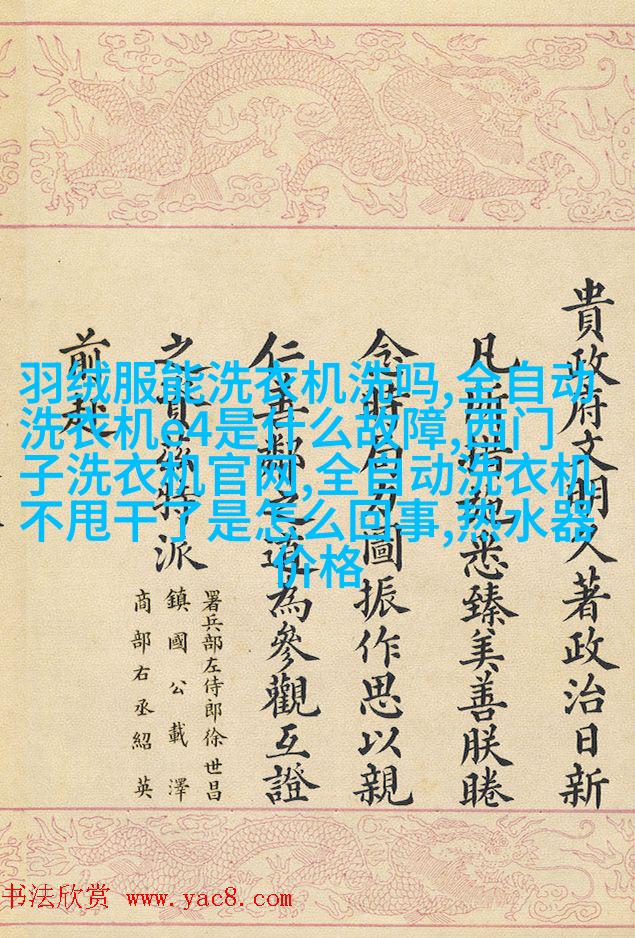 貴政府文明久著政治日新
凡所措施悉臻美善朕睠
念時局力圖振作思以親
仁善鄰之道為參觀互證
之資茲特派
署兵部左侍郎徐世昌
鎮國公載澤
商部右丞紹英
前赴
羽绒服能洗衣机洗吗,全自动
洗衣机e4是什么故障,西门
子洗衣机官网,全自动洗衣机
不甩干了是怎么回事,热水器
价格
书法欣赏 www.yac8.com